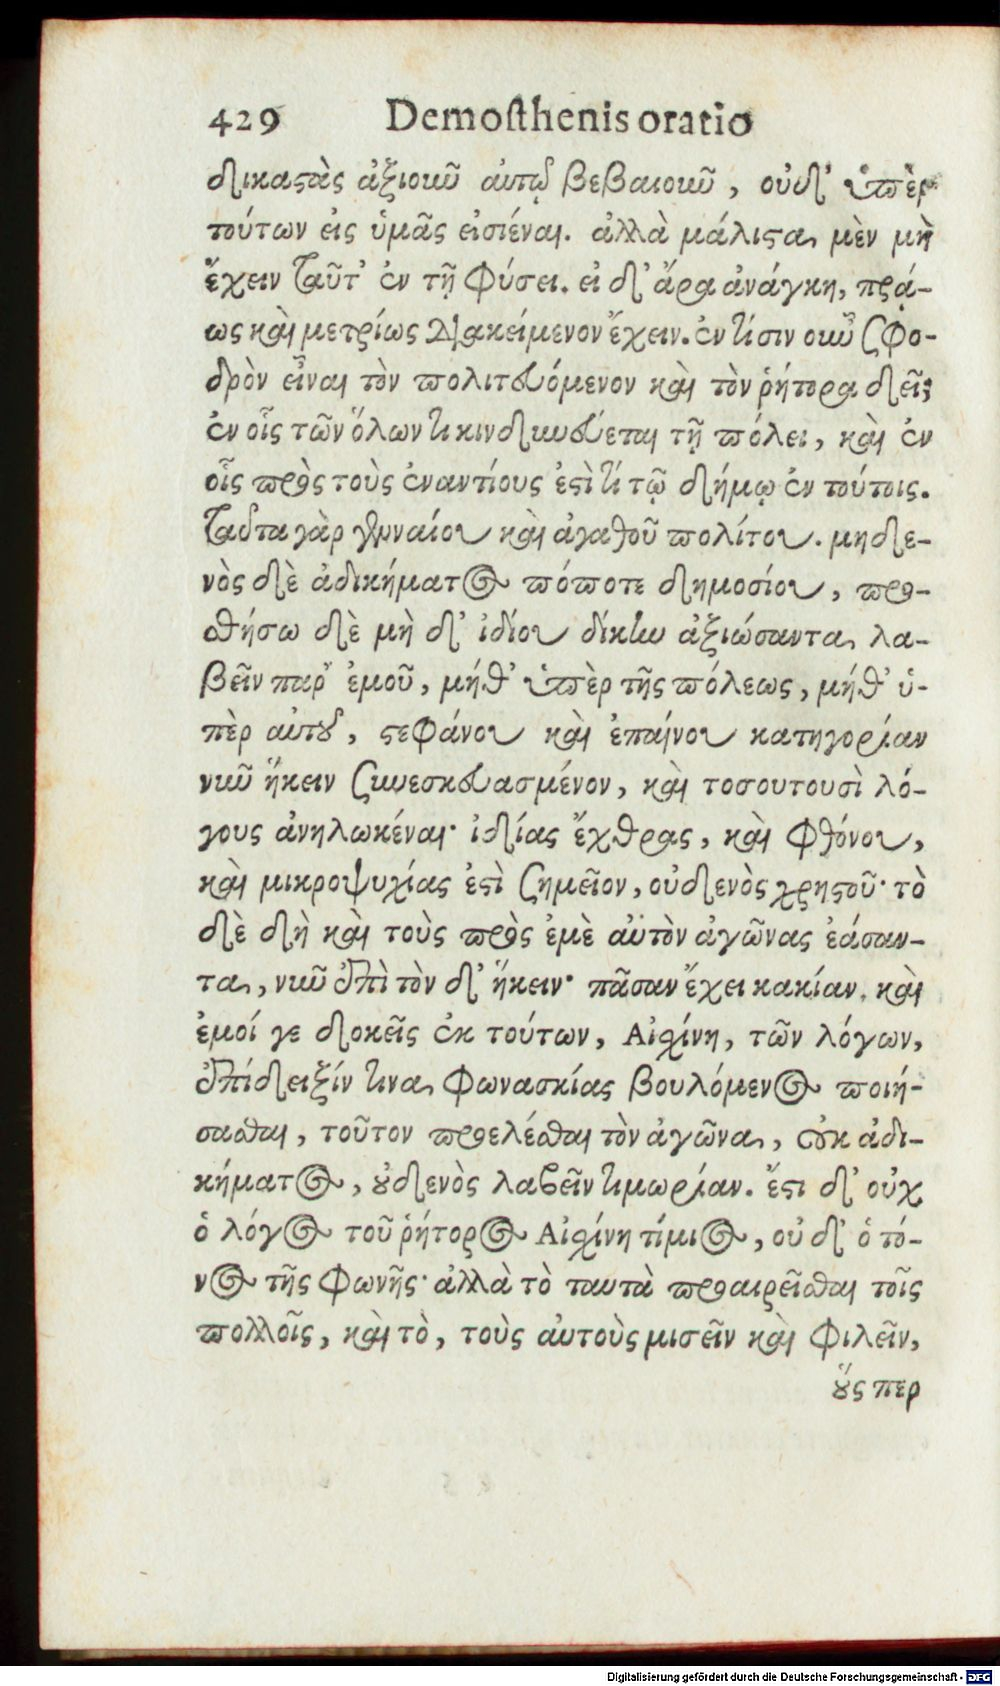 429 Demosthenis oratio
δικαστὰς ἀξιοῦν αὑτῷ βεβαιοῦν, οὐδ' ὑπὲρ
τούτων εἰς ὑμᾶς εἰσιέναι. ἀλλὰ μάλιστα μὲν μὴ
ἔχειν ταῦτ' ἐν τῇ φύσει. εἰ δ' ἄρα ἀνάγκη, πρᾴ-
ως καὶ μετρίως διακείμενον ἔχειν. ἐν τίσιν οὖν σφο-
δρὸν εἶναι τὸν πολιτευόμενον καὶ τὸν ῥήτορα δεῖ;
ἐν οἷς τῶν ὅλων τι κινδυνεύεται τῇ πόλει, καὶ ἐν
οἷς πρὸς τοὺς ἐναντίους ἐστί τι τῷ δήμῳ ἐν τούτοις.
ταῦτα γὰρ γενναίου καὶ ἀγαθοῦ πολίτου. μηδε-
νὸς δὲ ἀδικήματος πόποτε δημοσίου, προ-
σθήσω δὲ μὴ δ' ἰδίου δίκην ἀξιώσαντα λα-
βεῖν παρ' ἐμοῦ, μήθ' ὑπὲρ τῆς πόλεως, μήθ' ὑ-
πὲρ αὑτοῦ, στεφάνου καὶ ἐπαίνου κατηγορίαν
νῦν ἥκειν συνεσκευασμένον, καὶ τοσουτουσὶ λό-
γους ἀνηλωκέναι· ἰδίας ἔχθρας, καὶ φθόνου,
καὶ μικροψυχίας ἐστὶ σημεῖον, οὐδενὸς χρηστοῦ· τὸ
δὲ δὴ καὶ τοὺς πρὸς ἐμὲ αὐτὸν ἀγῶνας ἐάσαν-
τα, νῦν ἐπὶ τὸν δ' ἥκειν· πᾶσαν ἔχει κακίαν. καὶ
ἐμοί γε δοκεῖς ἐκ τούτων, Αἰσχίνη, τῶν λόγων,
ἐπίδειξίν τινα φωνασκίας βουλόμενος ποιή-
σασθαι, τοῦτον προελέσθαι τὸν ἀγῶνα, οὐκ ἀδι-
κήματος, οὐδενὸς λαβεῖν τιμωρίαν. ἔστι δ' οὐχ
ὁ λόγος τοῦ ῥήτορος Αἰσχίνη τίμιος, οὐ δ' ὁ τό-
νος τῆς φωνῆς· ἀλλὰ τὸ ταυτὰ προαιρεῖσθαι τοῖς
πολλοῖς, καὶ τὸ, τοὺς αὐτοὺς μισεῖν καὶ φιλεῖν,
οὕς περ
Digitalisierung gefördert durch die Deutsche Forschungsgemeinschaft - DFG